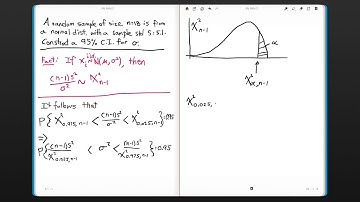 A random sample of size n=18 is from
a normal dist. with a sample std S=5.1.
Construct a 95% C.I. for σ.
Fact: If Xᵢ iid N(μ,σ²), then
(n-1)S²/σ² ~ X²ₙ₋₁
It follows that
P{X²0.975,n-1 < (n-1)S²/σ² < X²0.025,n-1}=0.95
=>
P{(n-1)S²/X²0.025,n-1 < σ² < (n-1)S²/X²0.975,n-1}=0.95
X²ₙ₋₁
α
X²α,n-1
X²0.025,